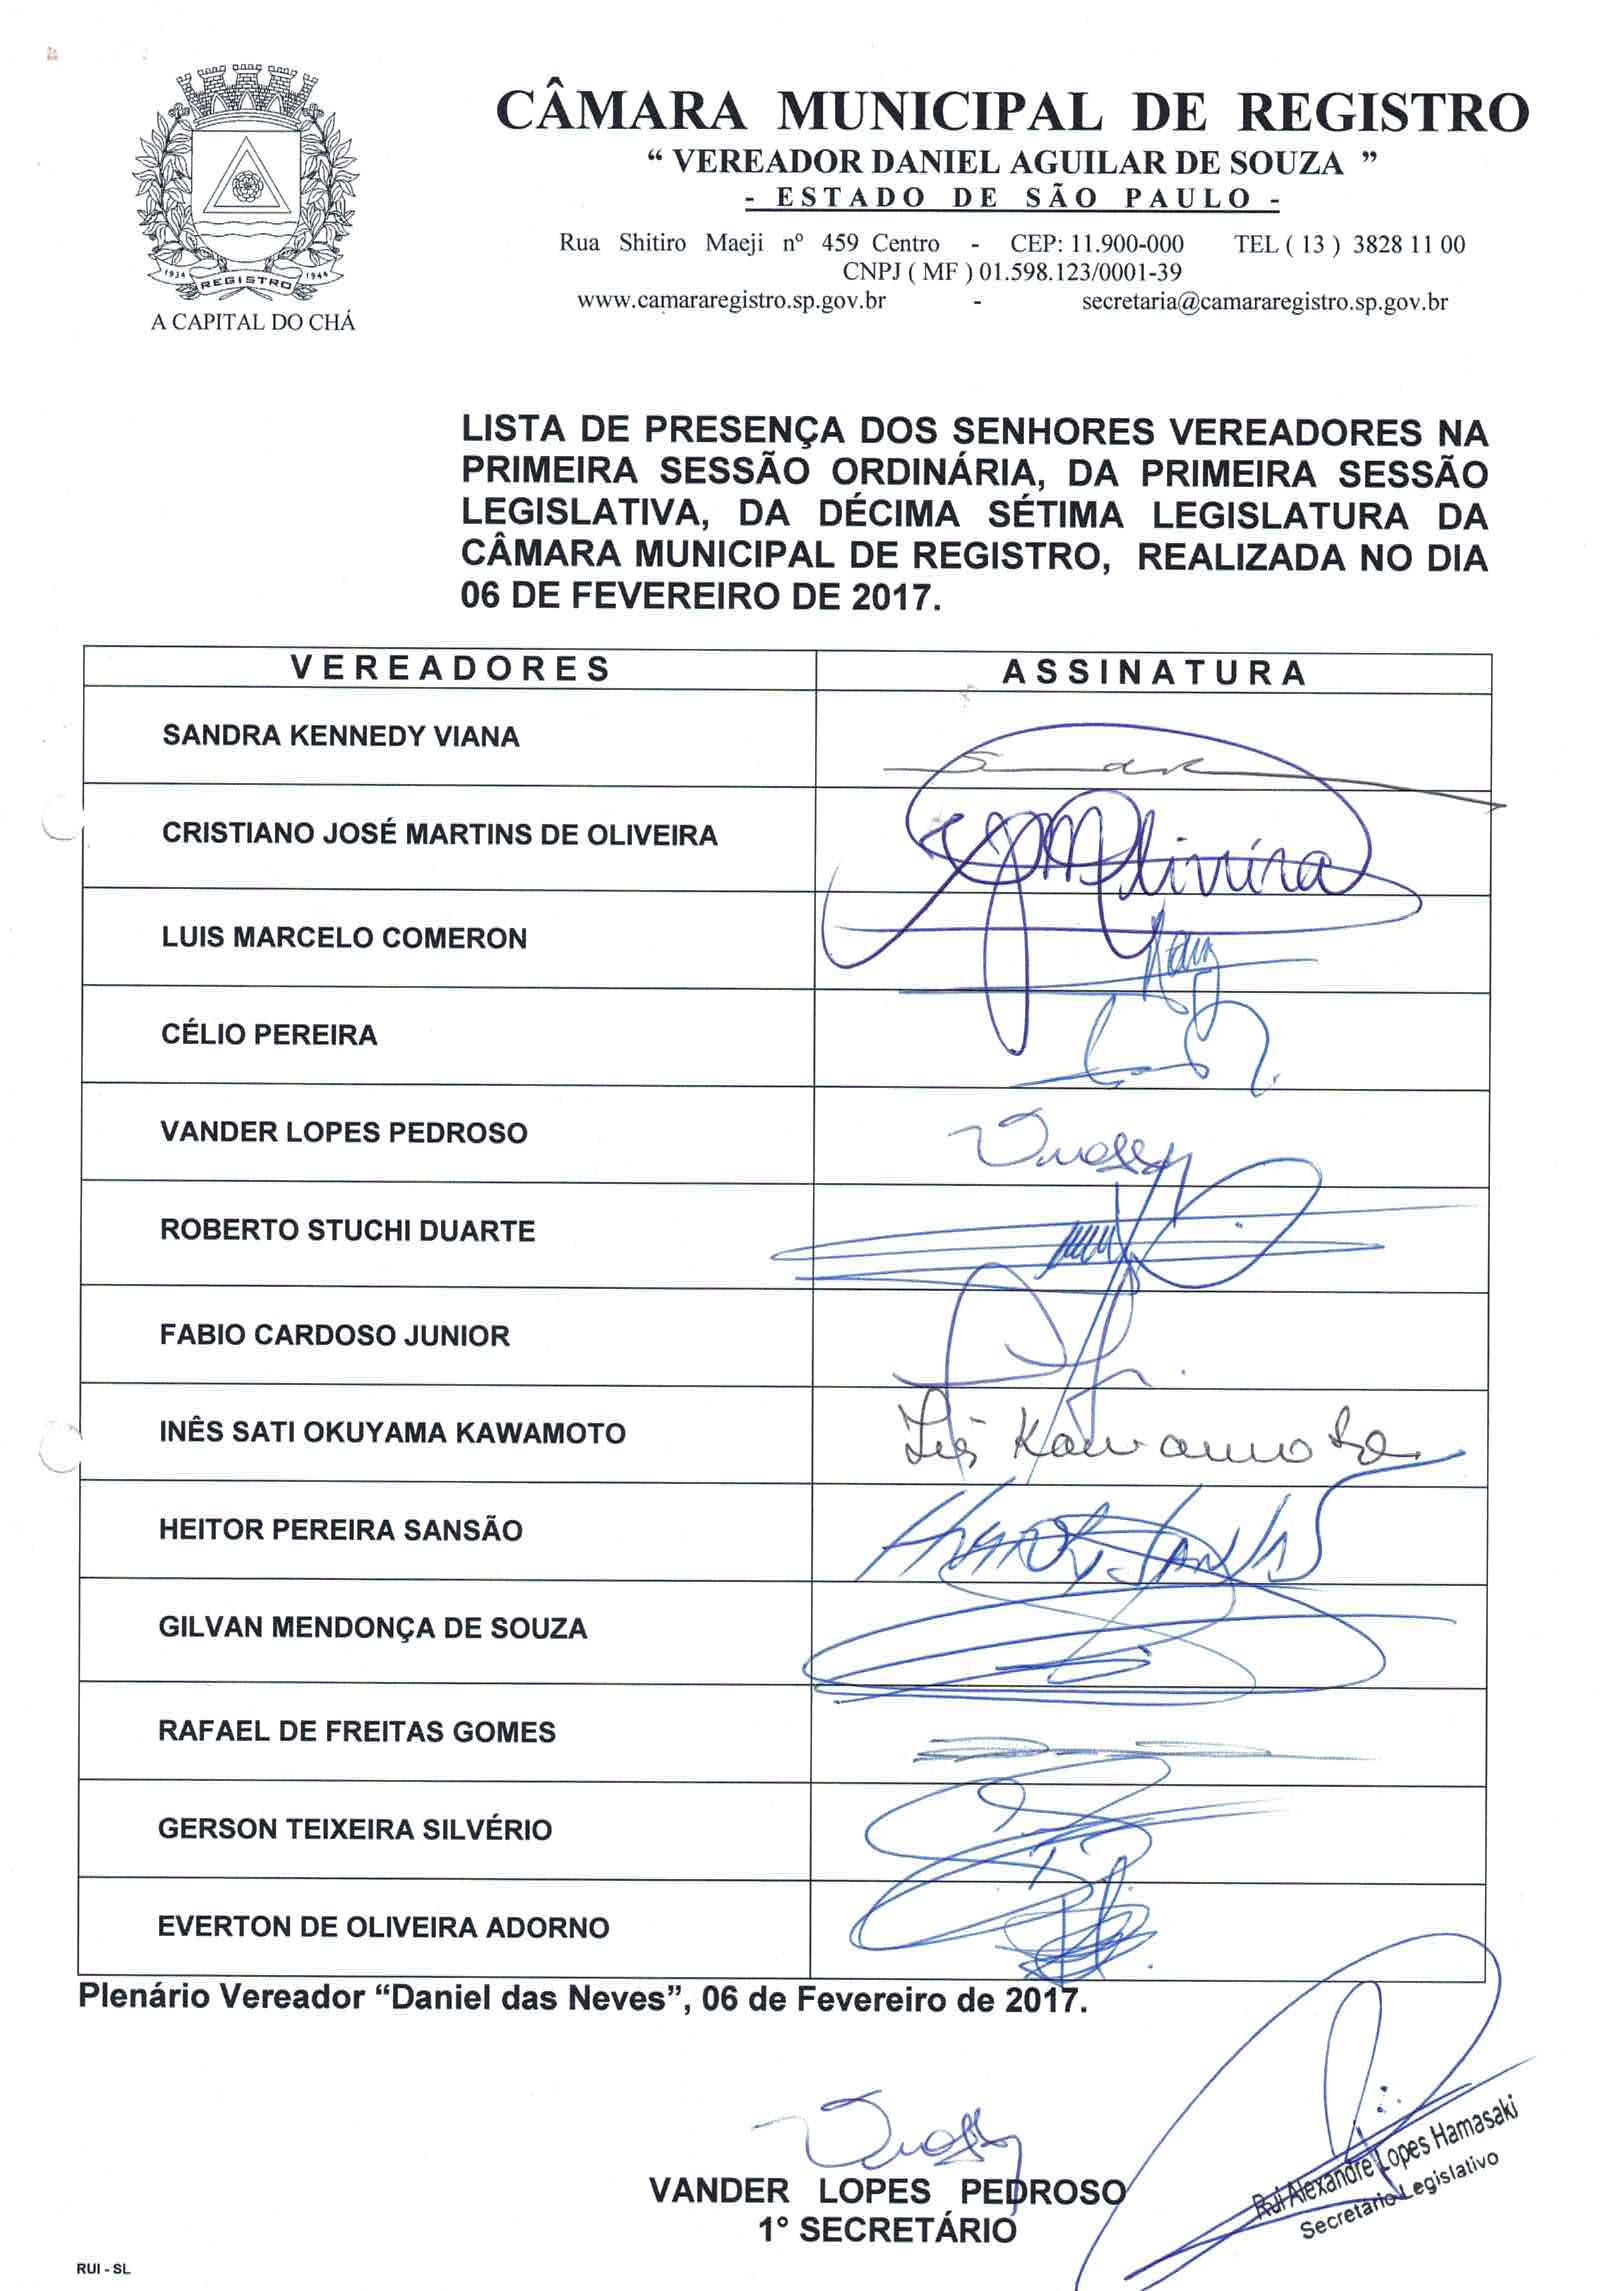 CÂMARA MUNICIPAL DE REGISTRO
“ VEREADOR DANIEL AGUILAR DE SOUZA ”
- ESTADO DE SÃO PAULO -
Rua Shitiro Maeji nº 459 Centro - CEP: 11.900-000 TEL ( 13 ) 3828 11 00
CNPJ ( MF ) 01.598.123/0001-39
www.camararegistro.sp.gov.br - secretaria@camararegistro.sp.gov.br
1934 REGISTRO 1944
A CAPITAL DO CHÁ
LISTA DE PRESENÇA DOS SENHORES VEREADORES NA
PRIMEIRA SESSÃO ORDINÁRIA, DA PRIMEIRA SESSÃO
LEGISLATIVA, DA DÉCIMA SÉTIMA LEGISLATURA DA
CÂMARA MUNICIPAL DE REGISTRO, REALIZADA NO DIA
06 DE FEVEREIRO DE 2017.
VEREADORES ASSINATURA
SANDRA KENNEDY VIANA
CRISTIANO JOSÉ MARTINS DE OLIVEIRA
LUIS MARCELO COMERON
CÉLIO PEREIRA
VANDER LOPES PEDROSO
ROBERTO STUCHI DUARTE
FABIO CARDOSO JUNIOR
INÊS SATI OKUYAMA KAWAMOTO Inês Kawamoto
HEITOR PEREIRA SANSÃO
GILVAN MENDONÇA DE SOUZA
RAFAEL DE FREITAS GOMES
GERSON TEIXEIRA SILVÉRIO
EVERTON DE OLIVEIRA ADORNO
Plenário Vereador “Daniel das Neves”, 06 de Fevereiro de 2017.
VANDER LOPES PEDROSO
1° SECRETÁRIO
Rui Alexandre Lopes Hamasaki
Secretário Legislativo
RUI - SL